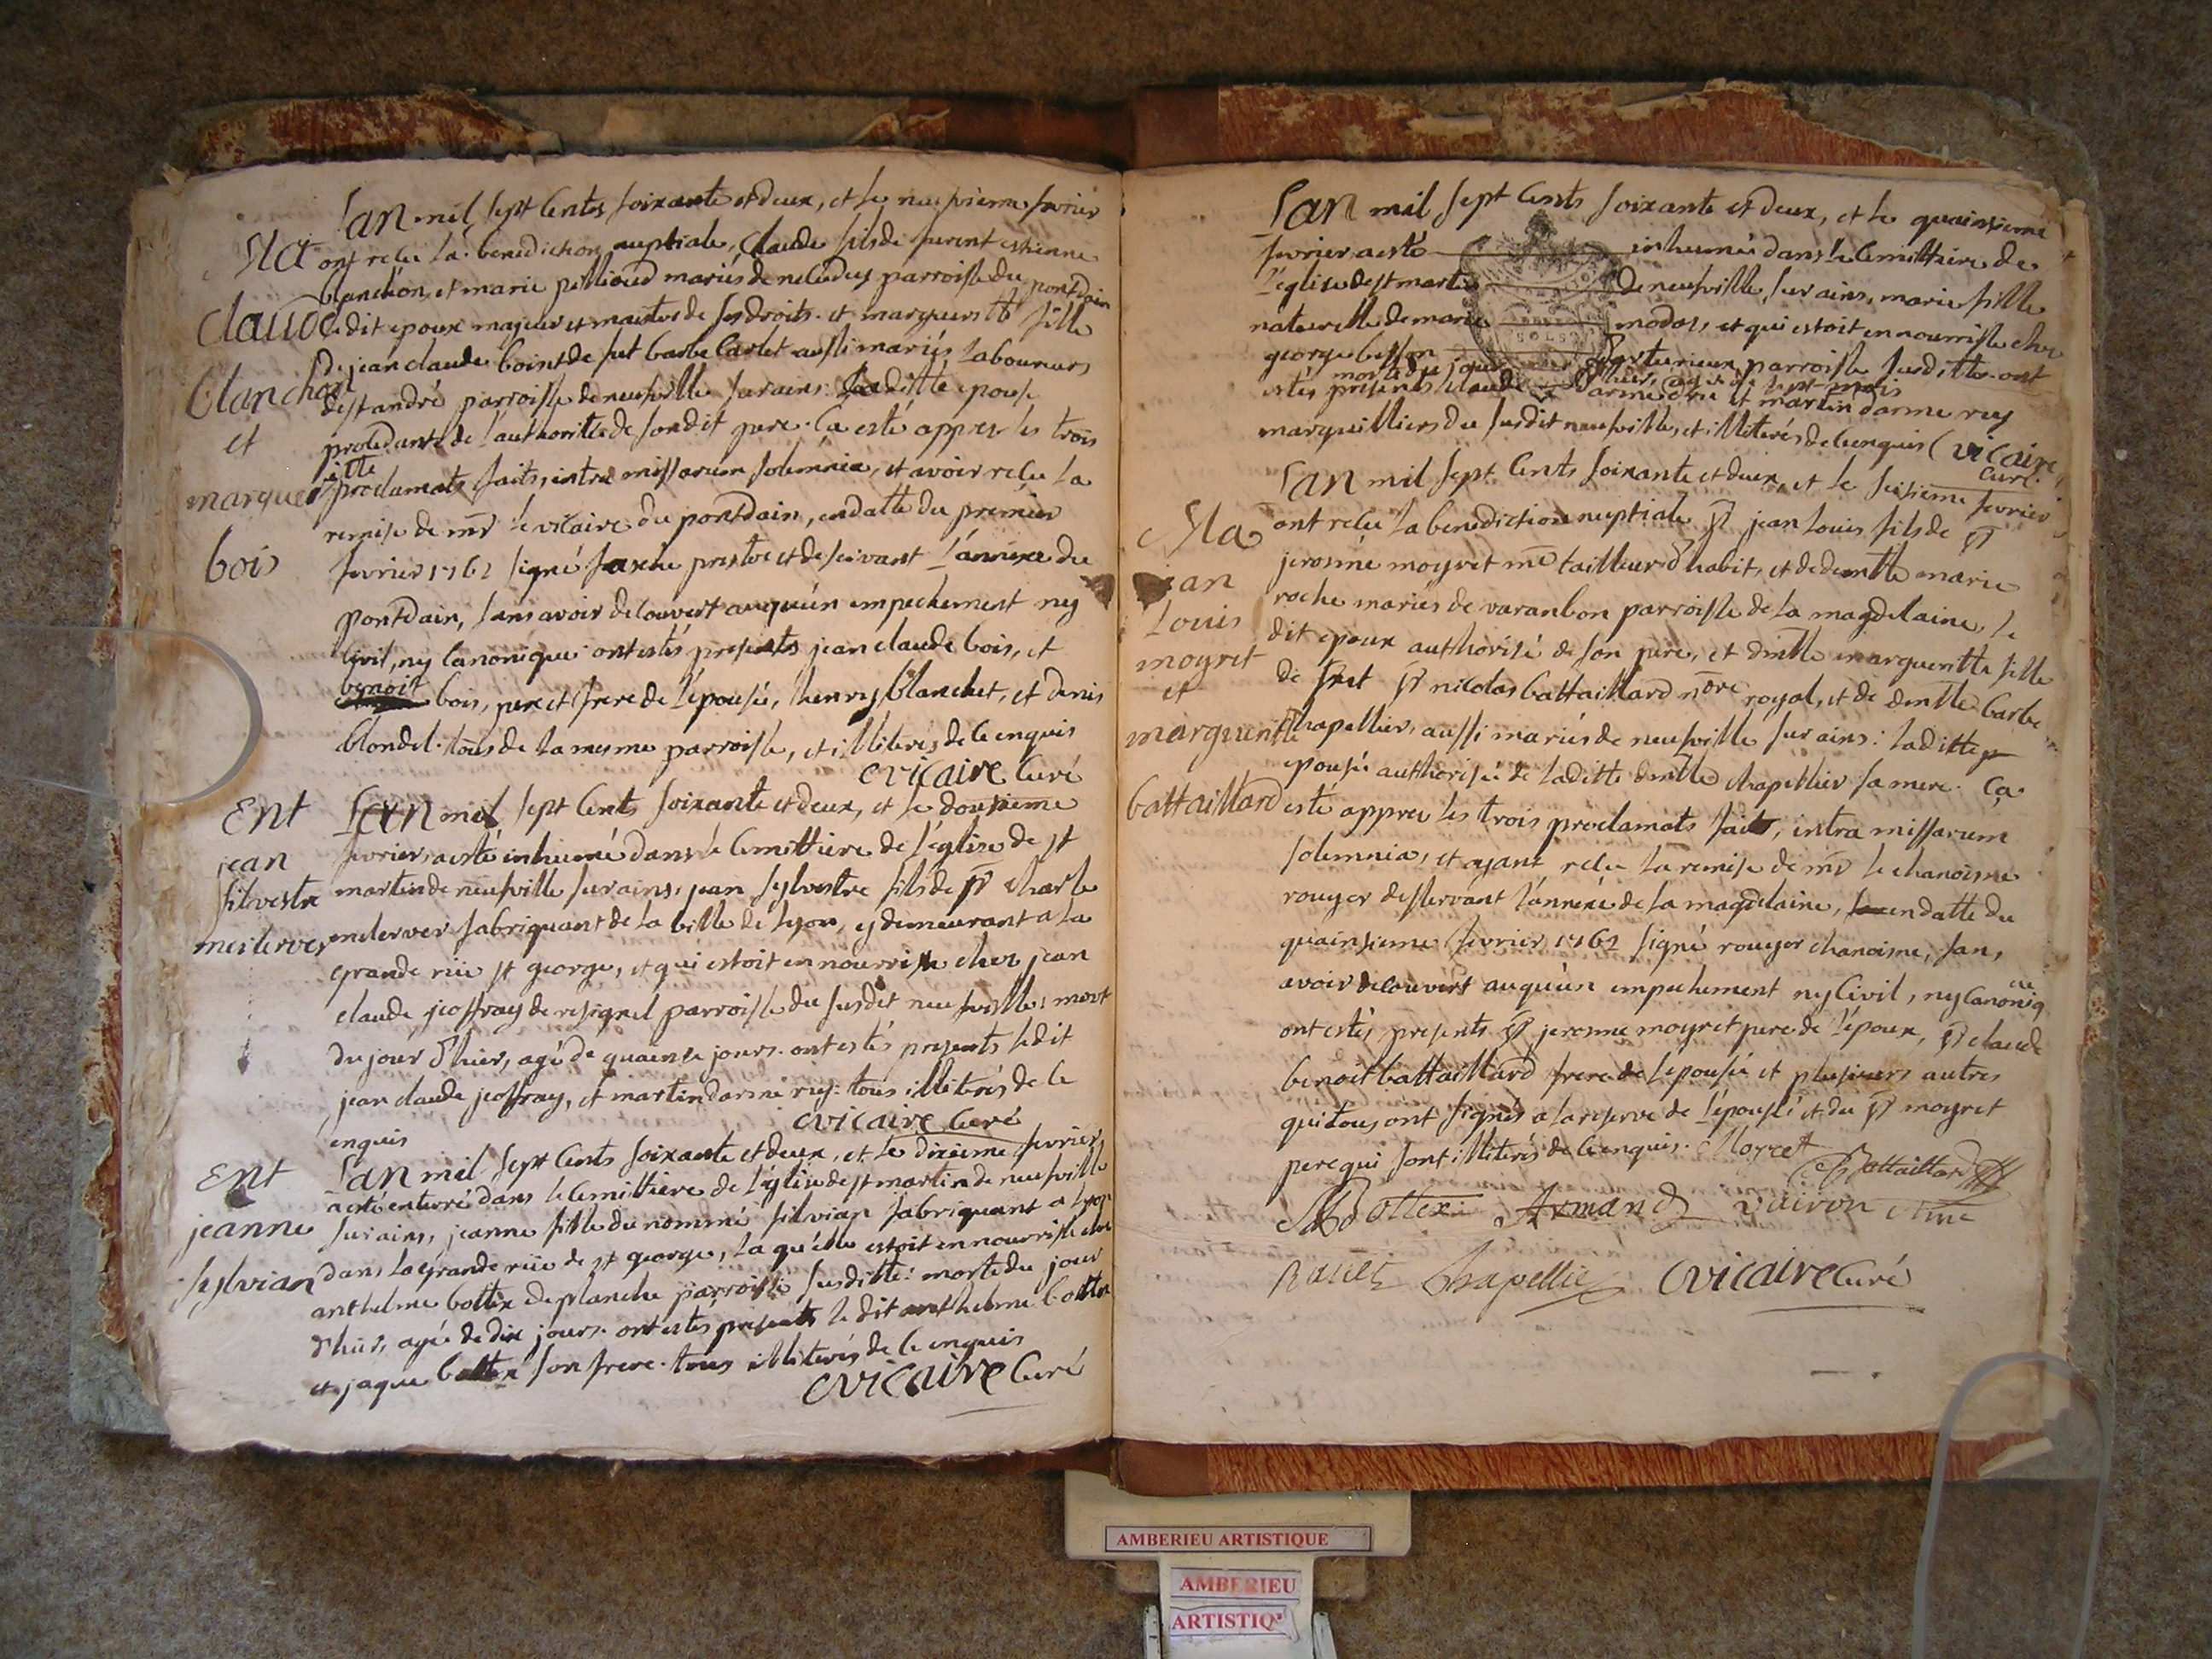 Lan mil sept cents soixante et deux, et le neufvieme fevrier
Ma
ont reçu la benediction nuptiale, Claude fils de furent estienne
blanchon, et marie pillioud mariés de parroisse du pontdain
Claude
ledit epoux majeur et maitre de ses droits. et margueritte fille
de jean claude bois et de fut barbe Carlet aussi mariés Laboureurs
blanchon
de st andré parroisse de neufville surains. Laditte epouse
et
procedante de l'authorité de son dit pere. Ca esté apprer les trois
margueritte
proclamats faits, intra missarum solemnia, et avoir reçu La
remise de mr le vicaire du pontdain, en datte du premier
bois
fevrier 1762 signé prestre et desservant L'annexe du
pontdain, sans avoir decouvert auquun empechement ny
Civil, ny Canonique. ont estés presents jean claude bois, et
benoit
bois, pere et frere de l'epousée, henry blanchet, et denis
blondel. tous de la mesme parroisse, et illiterés de ce enquis
cvicaire Curé
Ent
Lan mil sept cents soixante et deux, et le dousieme
jean
fevrier, a esté inhumé dans le Cemittiere de l'église de st
silvestre
martin de neufville surains, jean sylvestre fils de sr charle
meslerver
mclerver fabriquant de la ville de Lyon, y demeurant a la
grande rüe st george, et qui estoit en nourrisse cher jean
claude jeoffray de resignel parroisse du susdit neufville: mort
du jour d'hier, agé de quainse jours. ont estés presents ledit
jean claude jeoffray, et martin darmé rey. tous illiterés de ce
enquis
cvicaire Curé
Ent
Lan mil sept Cents soixante et deux, et le dixieme fevrier
a esté enterré dans le Cemittiere de l'église de st martin de neufville
jeanne
surains, jeanne fille du nommé silvian fabriquant a Lyon
sylvian
dans la grande rüe de st george, la quelle estoit en nourrisse cher
anthelme bottex de planche parroisse susditte: morte du jour
d'hier, agée de dix jours. ont estés presents le dit anthelme bottex
et jaque bottex son frere. tous illiterés de ce enquis
cvicaire Curé
Lan mil sept Cents soixante et deux, et le quainsieme
fevrier a esté inhumée dans le Cemittiere de
l'église de st martin de neufville, surains, marie fille
naturelle de marie modos, et qui estoit en nourrisse cher
george besson parroisse susditte. ont
morte du jour d'hier, agée de sept mois
estés presents claude darme et martin darme rey
marguilliers du susdit neufville, et illiterés de ce enquis Cvicaire
Curé
Lan mil sept Cents soixante et deux, et le seisieme fevrier
Ma
ont reçu la benediction nuptiale sr jean Louis fils de sr
jean
jerosme moyret me tailleur d'habit, et de demlle marie
Louis
roche mariés de varanbon parroisse de la magdelaine, le
moyret
dit epoux authorisé de son pere, et dmlle margueritte fille
et
de fut sr nicolas battaillard nore royal, et de demlle barbe
margueritte
chapellier, aussi mariés de neufville surains: laditte
epousée authorisée de laditte dmlle chapellier sa mere. Ca
battaillard
esté apprer les trois proclamats faits, intra missarum
solemnia, et ayant reçu la remise de mr le chanoisne
rouyer desservant l'annexe de la magdelaine, en datte du
quainsieme fevrier 1762 signé rouyer chanoisne, sans
avoir decouvert auquun empechement ny Civil, ny Canonique
ont estés presents sr jerosme moyret pere de l'epoux, sr claude
benoit battaillard frere de l'epousée et plusieurs autres
qui tous ont signés a la reserve de l'epousée et du sr moyret
pere qui sont illiterés de ce enquis. Moyret
Battaillard
Bottex Armand vairon
Ravet Chapellier Cvicaire Curé
AMBERIEU ARTISTIQUE
AMBERIEU
ARTISTIQ